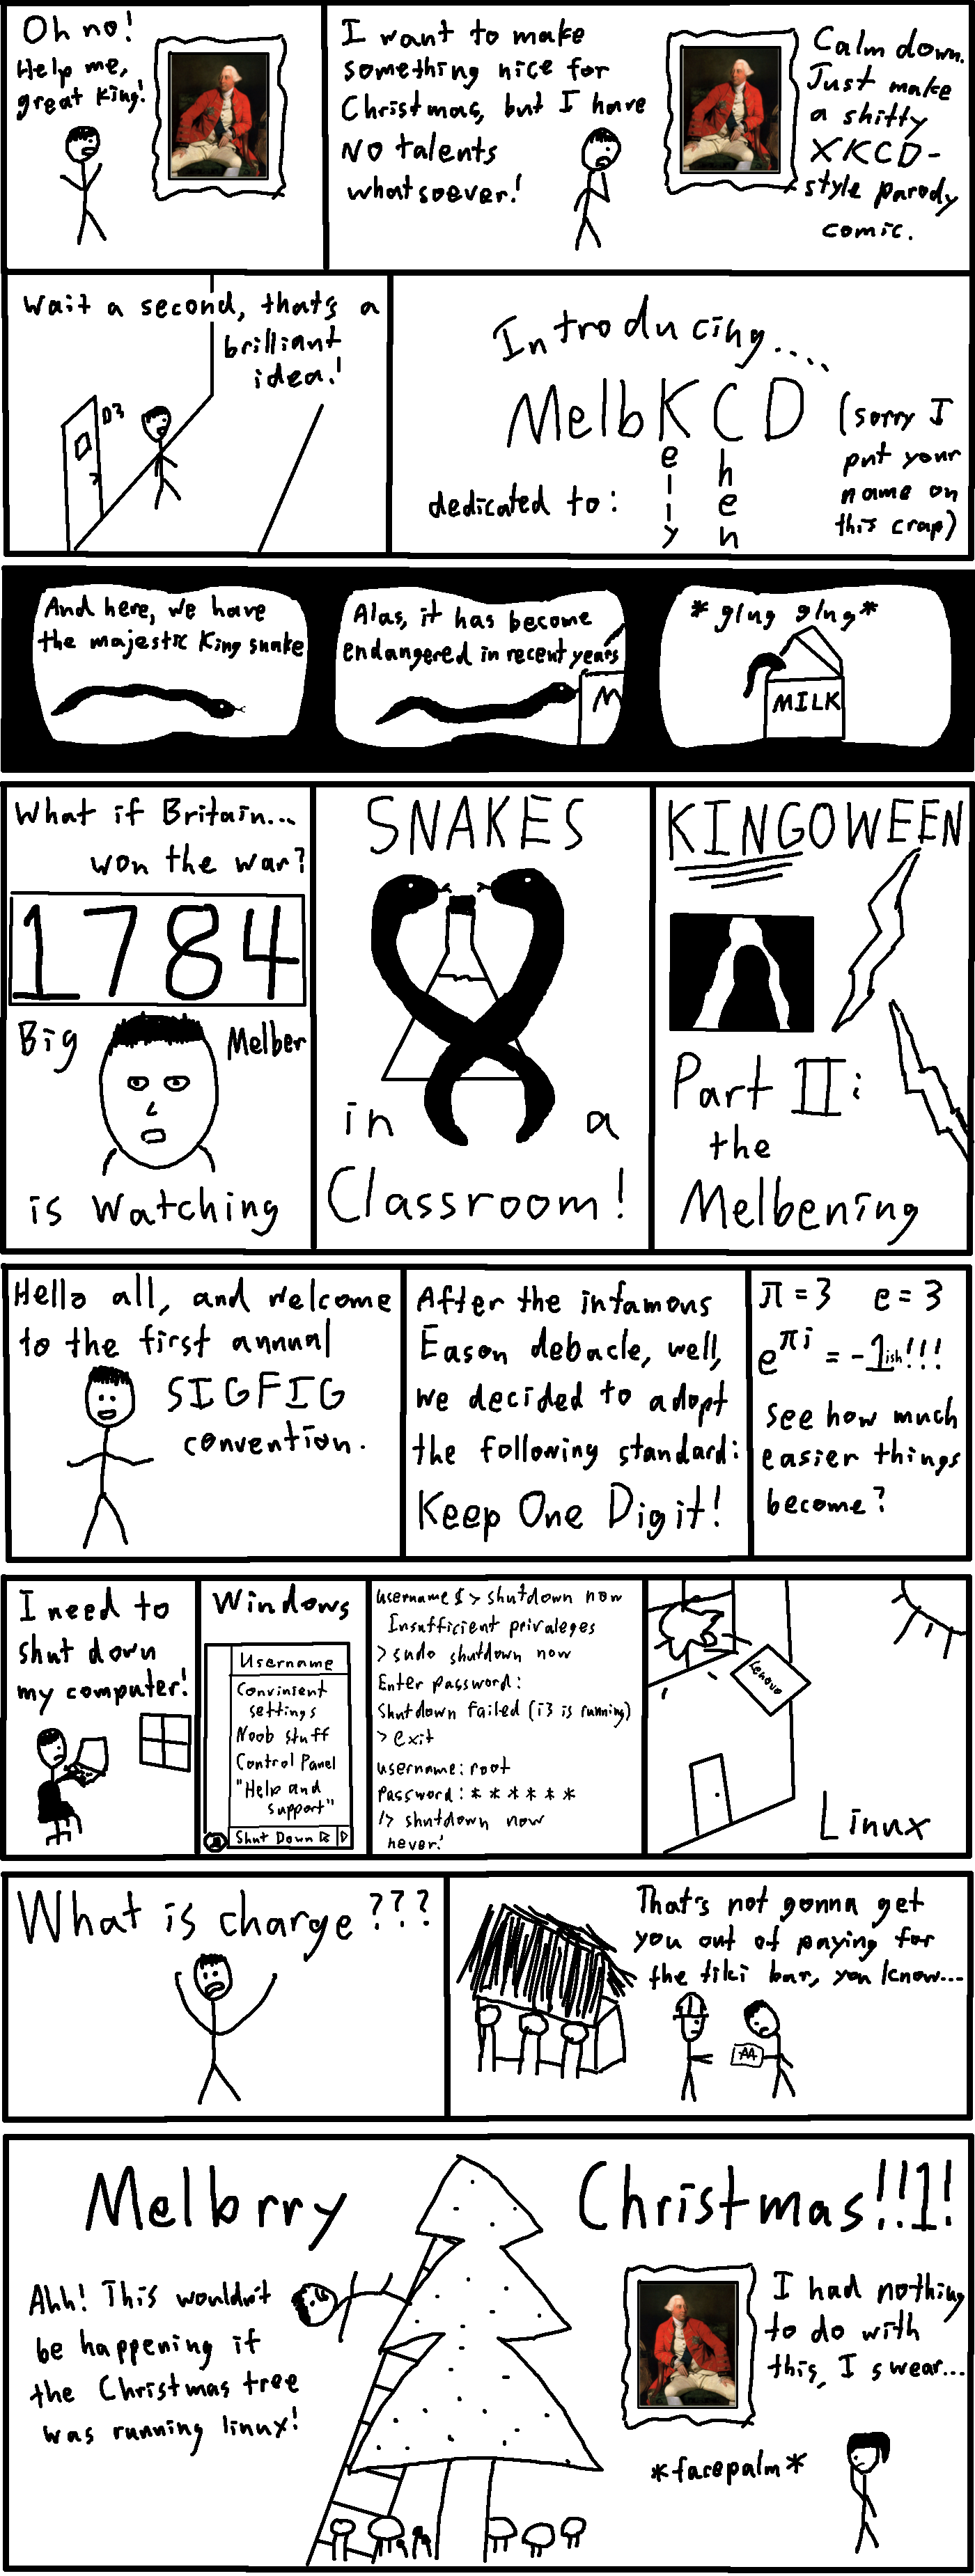 Oh no!
Help me,
great King!
I want to make
something nice for
Christmas, but I have
NO talents
whatsoever!
Calm down.
Just make
a shitty
XKCD-
style parody
comic.
Wait a second, that's a
brilliant
idea!
D3
Introducing....
MelbKCD
dedicated to:
Kelly
Chen
(sorry I
put your
name on
this crap)
And here, we have
the majestic King snake
Alas, it has become
endangered in recent years
M
*glug glug*
MILK
What if Britain...
won the war?
1784
Big Melber
is Watching
SNAKES
in a
Classroom!
KINGOWEEN
Part II:
the
Melbening
Hello all, and welcome
to the first annual
SIGFIG
convention.
After the infamous
Eason debacle, well,
we decided to adopt
the following standard:
Keep One Digit!
π = 3 e = 3
e^πi = -1ish!!!
see how much
easier things
become?
I need to
shut down
my computer!
Windows
Username
Convinient
settings
Noob stuff
Control Panel
"Help and
support"
Shut Down
username$> shutdown now
Insufficient privaleges
> sudo shutdown now
Enter password:
Shutdown failed (i3 is running)
> exit
username: root
password: * * * * * *
/> shutdown now
never!
Lenovo
Linux
What is charge???
That's not gonna get
you out of paying for
the tiki bar, you know...
AA
Melbrry Christmas!!1!
Ahh! This wouldn't
be happening if
the Christmas tree
was running linux!
I had nothing
to do with
this, I swear...
*facepalm*